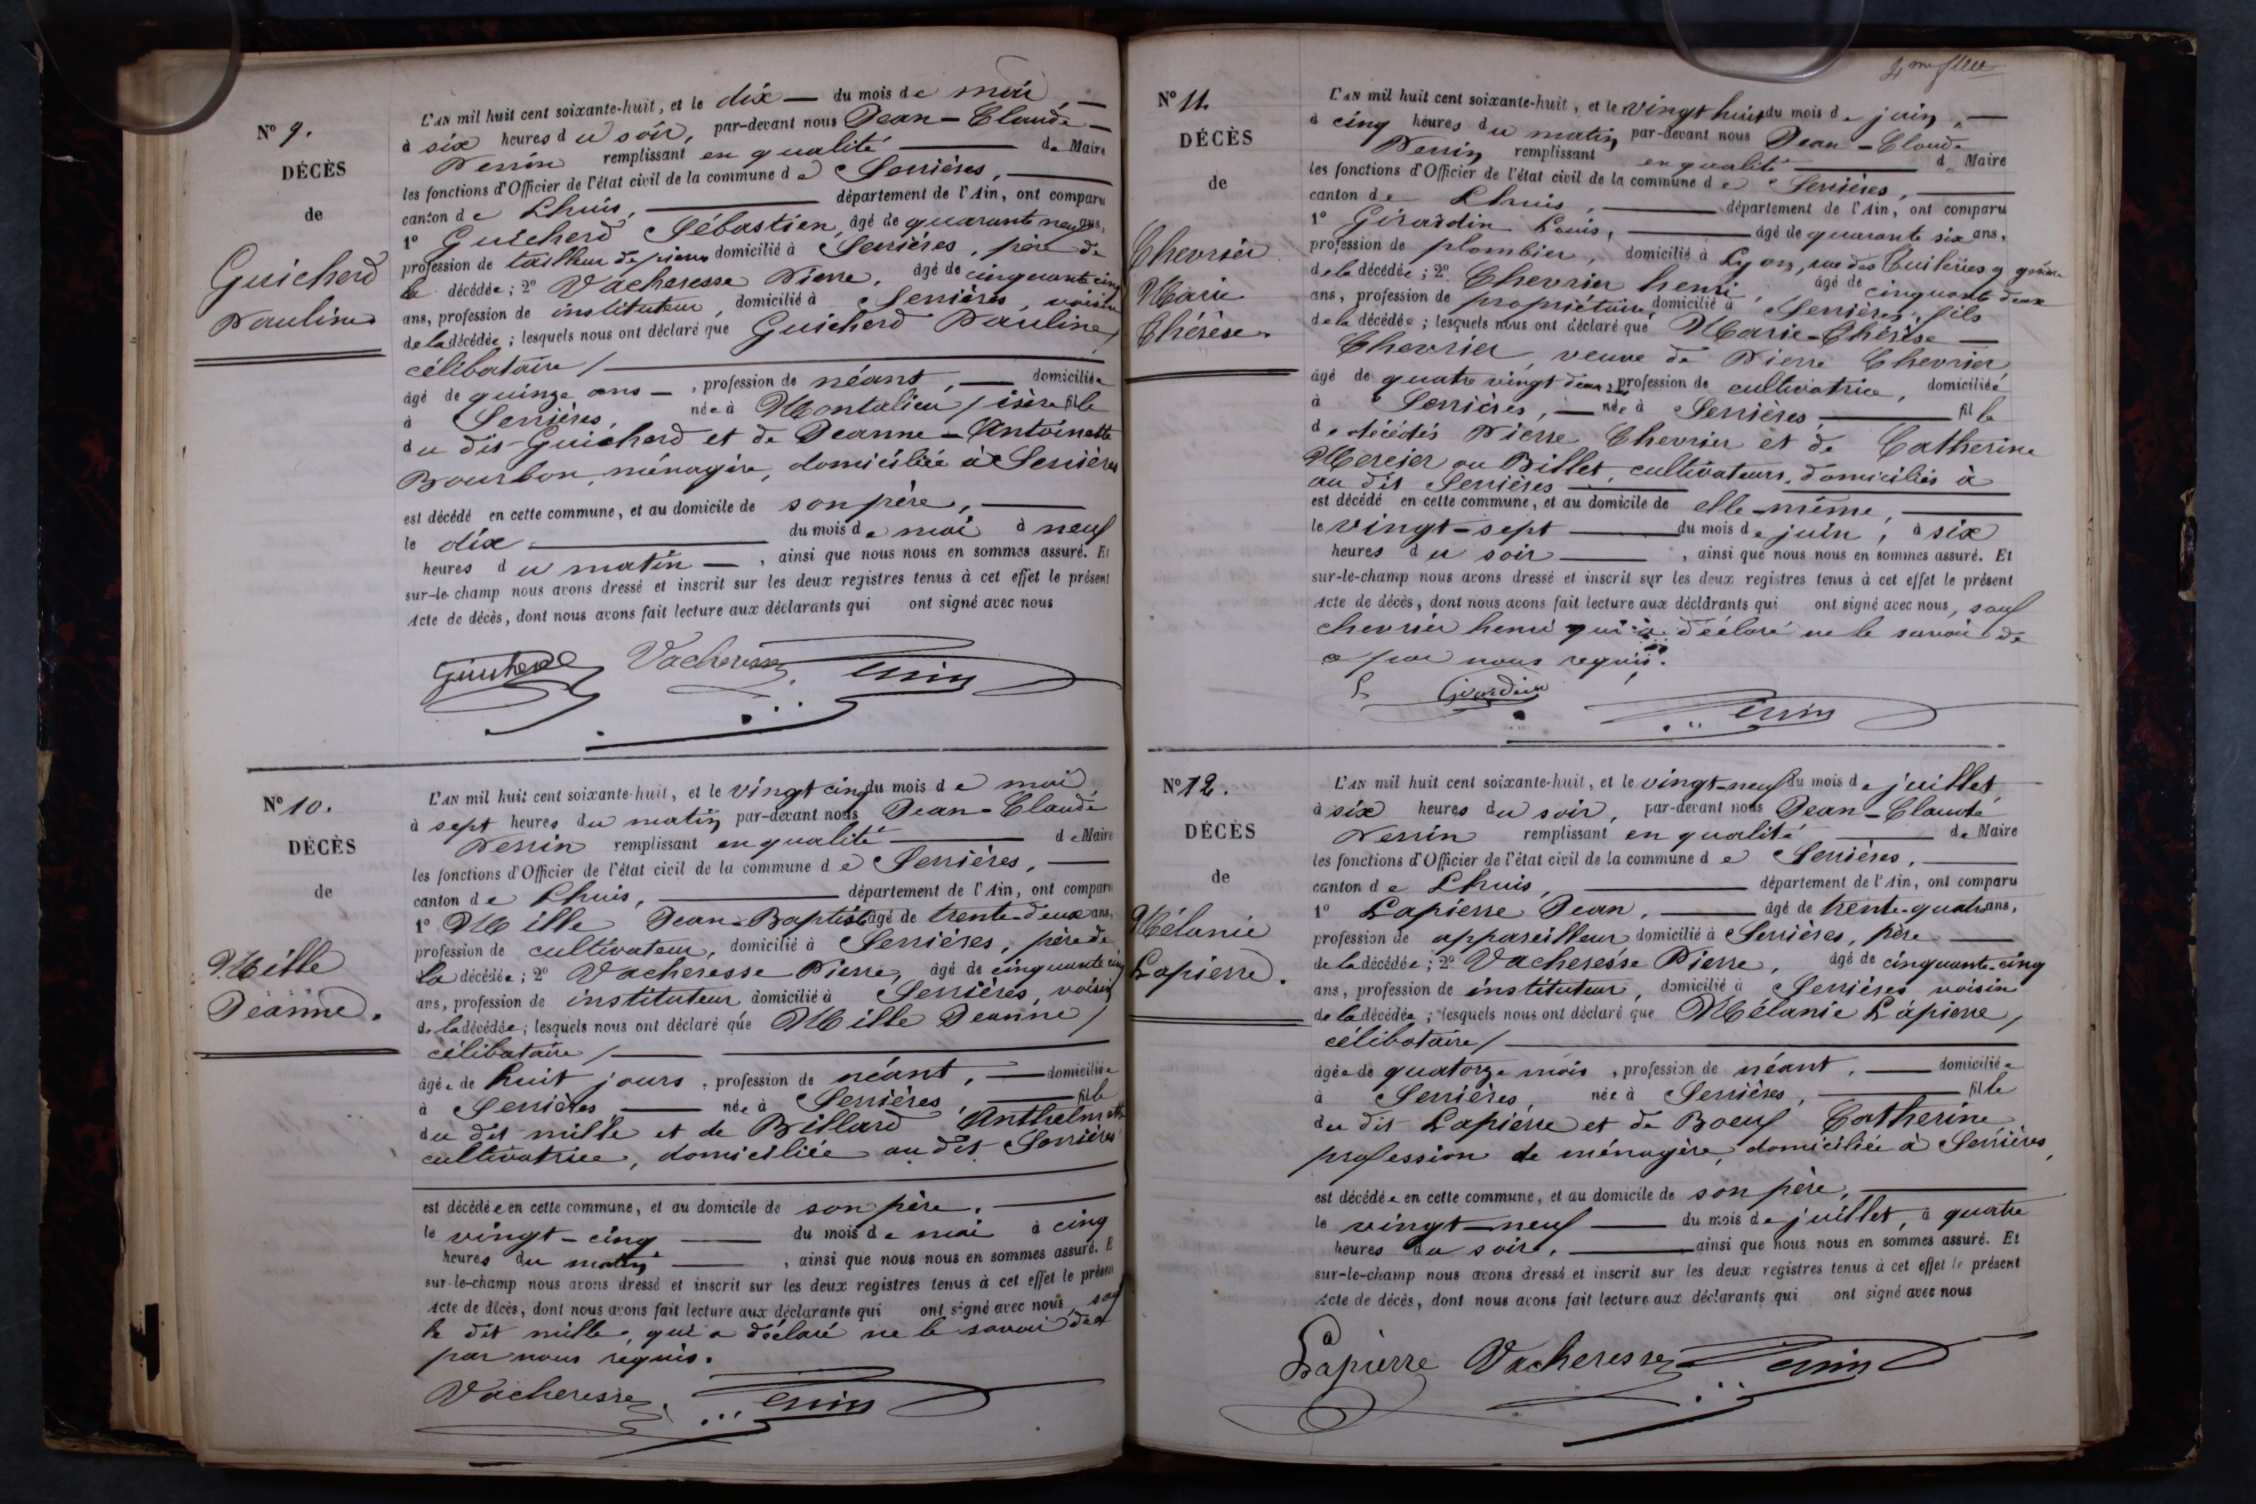 N° 9.
DÉCÈS
de
Guicherd
Pauline
L'AN mil huit cent soixante-huit, et le dix — du mois de mai, —
à six heures du soir, par-devant nous Jean-Claude —
Perrin remplissant en qualité — de Maire
les fonctions d'Officier de l'état civil de la commune de Serrières, —
canton de Lhuis, — département de l'Ain, ont comparu
1° Guicherd Sébastien, âgé de quarante neuf ans,
profession de tailleur de pierres domicilié à Serrières, père de
la décédée; 2° Vacheresse Pierre, âgé de cinquante cinq
ans, profession de instituteur, domicilié à Serrières, voisin
de la décédée; lesquels nous ont déclaré que Guicherd Pauline,
célibataire / —
âgé de quinze ans —, profession de néant, — domiciliée
à Serrières, née à Montalieu, isère fille
du dit Guicherd et de Jeanne-Antoinette
Bourbon, ménagère, domiciliée à Serrières
est décédé en cette commune, et au domicile de son père, —
le dix — du mois de mai à neuf
heures du matin —, ainsi que nous nous en sommes assuré. Et
sur-le-champ nous avons dressé et inscrit sur les deux registres tenus à cet effet le présent
Acte de décès, dont nous avons fait lecture aux déclarants qui ont signé avec nous
Guicherd Vacheresse Perrin
N° 10.
DÉCÈS
de
Mille
Jeanne.
L'AN mil huit cent soixante-huit, et le vingt cinq du mois de mai
à sept heures du matin par-devant nous Jean-Claude
Perrin remplissant en qualité — de Maire
les fonctions d'Officier de l'état civil de la commune de Serrières, —
canton de Lhuis, — département de l'Ain, ont comparu
1° Mille Jean-Baptiste âgé de trente-deux ans,
profession de cultivateur, domicilié à Serrières, père de
la décédée; 2° Vacheresse Pierre, âgé de cinquante cinq
ans, profession de instituteur domicilié à Serrières, voisin
de la décédée; lesquels nous ont déclaré que Mille Jeanne /
célibataire / —
âgée de huit jours, profession de néant, — domiciliée
à Serrières, — née à Serrières, — fille
du dit mille et de Billard Anthelmette
cultivatrice, domiciliée au dit Serrières
est décédée en cette commune, et au domicile de son père, —
le vingt-cinq — du mois de mai à cinq
heures du matin —, ainsi que nous nous en sommes assuré. E
sur-le-champ nous avons dressé et inscrit sur les deux registres tenus à cet effet le présent
Acte de décès, dont nous avons fait lecture aux déclarants qui ont signé avec nous, sauf
le dit mille, qui a déclaré ne le savoir de ce
par nous requis.
Vacheresse Perrin
N° 11.
DÉCÈS
de
Chevrier
Marie
Thérèse.
L'AN mil huit cent soixante-huit, et le vingt huit du mois de juin, —
à cinq heures du matin par-devant nous Jean-Claude
Perrin remplissant en qualité — de Maire
les fonctions d'Officier de l'état civil de la commune de Serrières, —
canton de Lhuis, — département de l'Ain, ont comparu
1° Girardin Louis, — âgé de quarante six ans,
profession de plombier, domicilié à Lyon, rue des Tuileries 9 gendre
de la décédée; 2° Chevrier henri, âgé de cinquante deux
ans, profession de propriétaire, domicilié à Serrières, fils
de la décédée; lesquels nous ont déclaré que Marie-Thérèse —
Chevrier, veuve de Pierre Chevrier
âgé de quatre vingt deux ans, profession de cultivatrice, domiciliée
à Serrières, — née à Serrières, — fille
de décédés Pierre Chevrier et de Catherine
Mercier ou Billet, cultivateurs, domiciliés à
au dit Serrières —
est décédé en cette commune, et au domicile de elle-même, —
le vingt-sept — du mois de juin, à six
heures du soir —, ainsi que nous nous en sommes assuré. Et
sur-le-champ nous avons dressé et inscrit sur les deux registres tenus à cet effet le présent
Acte de décès, dont nous avons fait lecture aux déclarants qui ont signé avec nous, sauf
chevrier henri qui a déclaré ne le savoir de
ce par nous requis.
L Girardin Perrin
N° 12.
DÉCÈS
de
Mélanie
Lapierre.
L'AN mil huit cent soixante-huit, et le vingt-neuf du mois de juillet
à six heures du soir, par-devant nous Jean-Claude
Perrin remplissant en qualité — de Maire
les fonctions d'Officier de l'état civil de la commune de Serrières, —
canton de Lhuis, — département de l'Ain, ont comparu
1° Lapierre Jean, — âgé de trente-quatre ans,
profession de appareilleur domicilié à Serrières, père —
de la décédée; 2° Vacheresse Pierre, âgé de cinquante-cinq
ans, profession de instituteur, domicilié à Serrières voisin
de la décédée; lesquels nous ont déclaré que Mélanie Lapierre,
célibataire / —
âgée de quatorze mois, profession de néant, — domiciliée
à Serrières, née à Serrières, — fille
du dit Lapierre et de Boeuf Catherine
profession de ménagère, domiciliée à Serrières,
est décédée en cette commune, et au domicile de son père, —
le vingt-neuf — du mois de juillet, à quatre
heures du soir, — ainsi que nous nous en sommes assuré. Et
sur-le-champ nous avons dressé et inscrit sur les deux registres tenus à cet effet le présent
Acte de décès, dont nous avons fait lecture aux déclarants qui ont signé avec nous
Lapierre Vacheresse Perrin